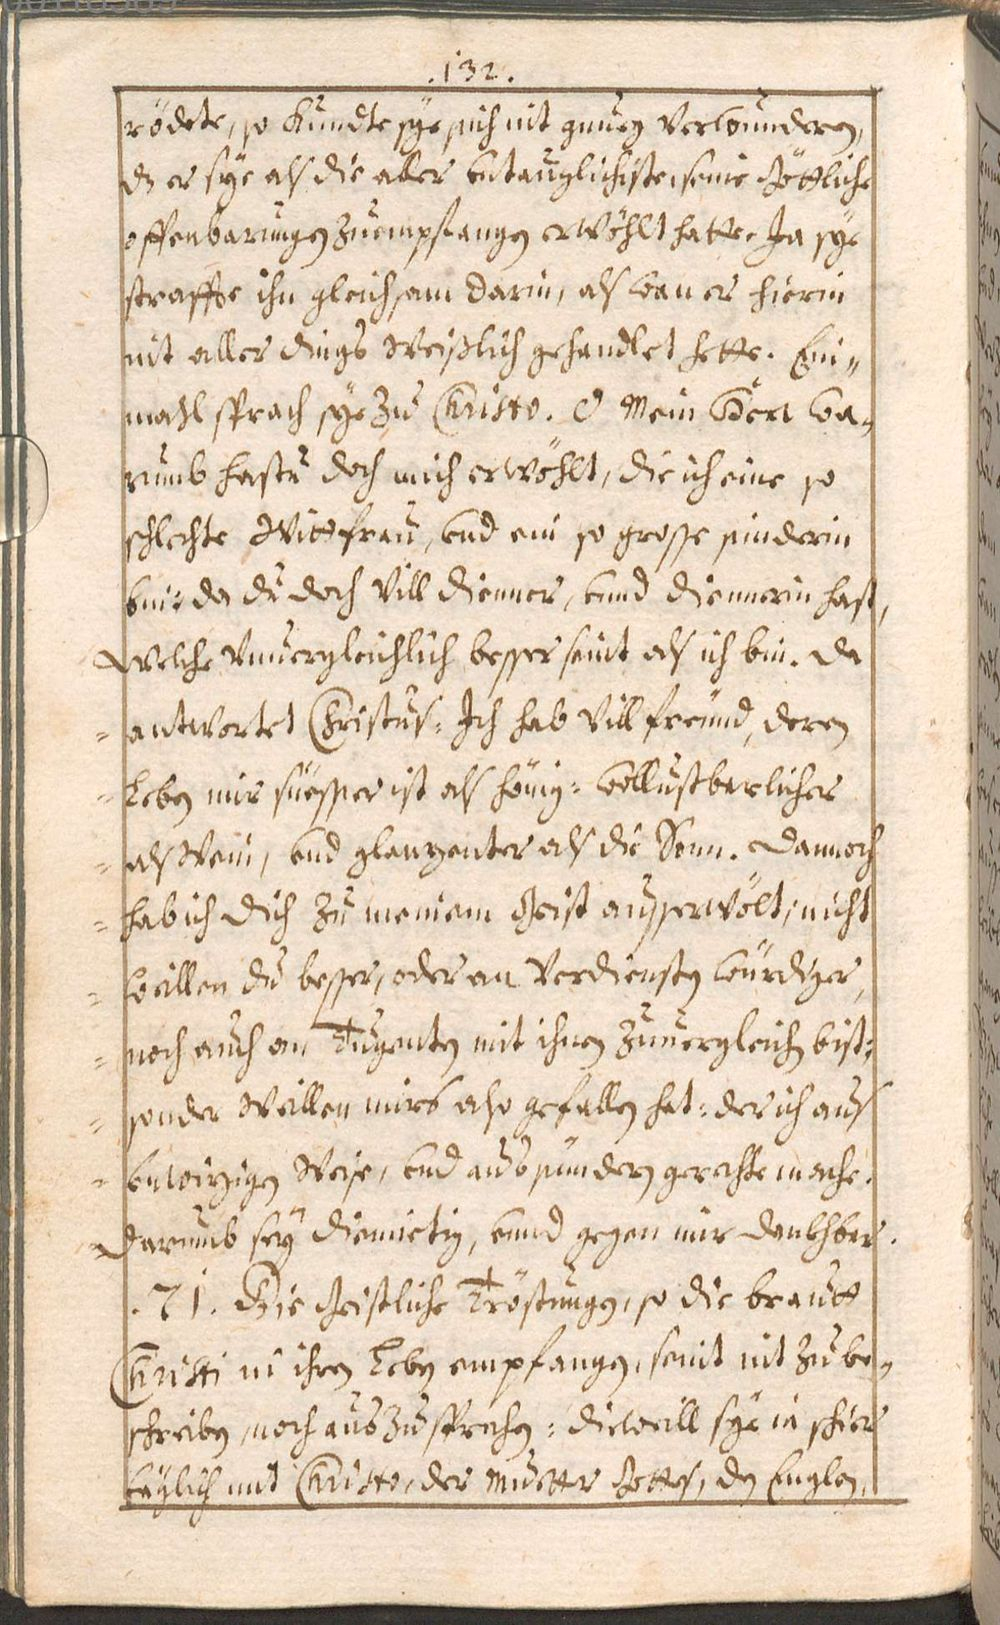 .132.
rödete, so kundte sÿe sich nit gnueg verwunderen,
dz er sÿe als die aller untauglichiste, seine Göttliche
offenbarungen zuempfangen erwöhlt hatte. Ja sÿe
straffte ihn gleichsam darin, als wan er hierin
nit aller dings Weißlich gehandlet hette. Ein„
mahl sprach sÿe zu Christo. O mein Herr wa„
rumb hastu doch mich erwöhlt, die ich eine so
schlechte Wittfrau, und ein so grosse sinderin
bin: da du doch vill dienner, unnd diennerin hast,
Welche unuergleichlich besser seint als ich bin. Da
= antwortet Christus: Ich hab vill freünd, deren
= Leben mir süesser ist als hönig: wollustbarlicher
= als Wein, und glanzenter als die Sonn. Dannoch
= hab ich dich zu meinem Geist ausserwölt; nicht
= weillen du besser, oder an verdiensten würdiger,
= noch auch an Tugenten mit ihnen zuuergleichen bist:
= sonder Weillen mirs also gefallen hat: der ich aus
= unwizigen Weise, und aus sünderen gerechte mache.
= Darumb seÿ diemietig, unnd gegen mir dankhbar.
.71. Die Geistliche Tröstungen, so die brautt
Christi in ihren Leben empfangen, seint nit zu be„
schreiben, noch auszusprechen: dieweill sÿe ia schier
täglich mit Christo, der Muetter Gottes, den Englen,